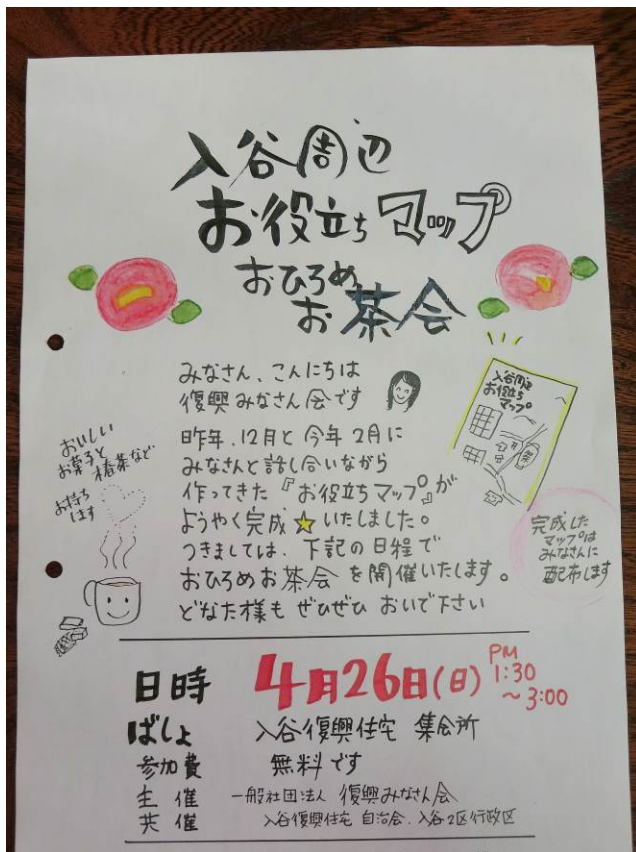 入谷周辺
お役立ちマップ
おひろめ
お茶会
みなさん、こんにちは
復興みなさん会です
昨年、12月と今年2月に
みなさんと話し合いながら
作ってきた『お役立ちマップ』が
ようやく完成☆いたしました。
つきましては、下記の日程で
おひろめお茶会を開催いたします。
どなた様もぜひぜひおいで下さい
おいしい
お菓子と
椿茶など
お持ち
します
入谷周辺
お役立ち
マップ
完成した
マップは
みなさんに
配布します
日時 4月26日(日) PM 1:30
～3:00
ばしょ 入谷復興住宅 集会所
参加費 無料です
主催 一般社団法人 復興みなさん会
共催 入谷復興住宅 自治会、入谷2区行政区